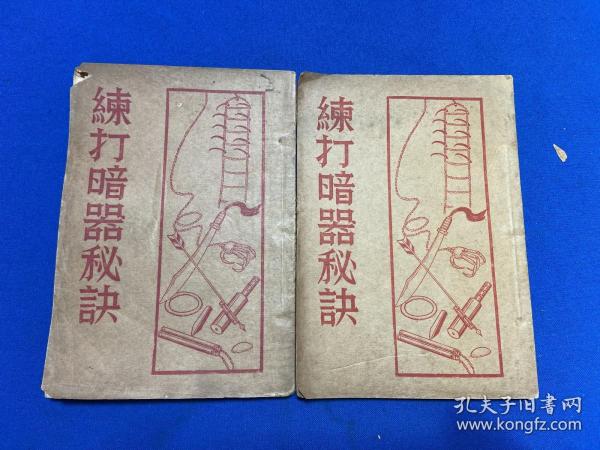 練打暗器秘訣
練打暗器秘訣
孔夫子旧書网
www.kongfz.com